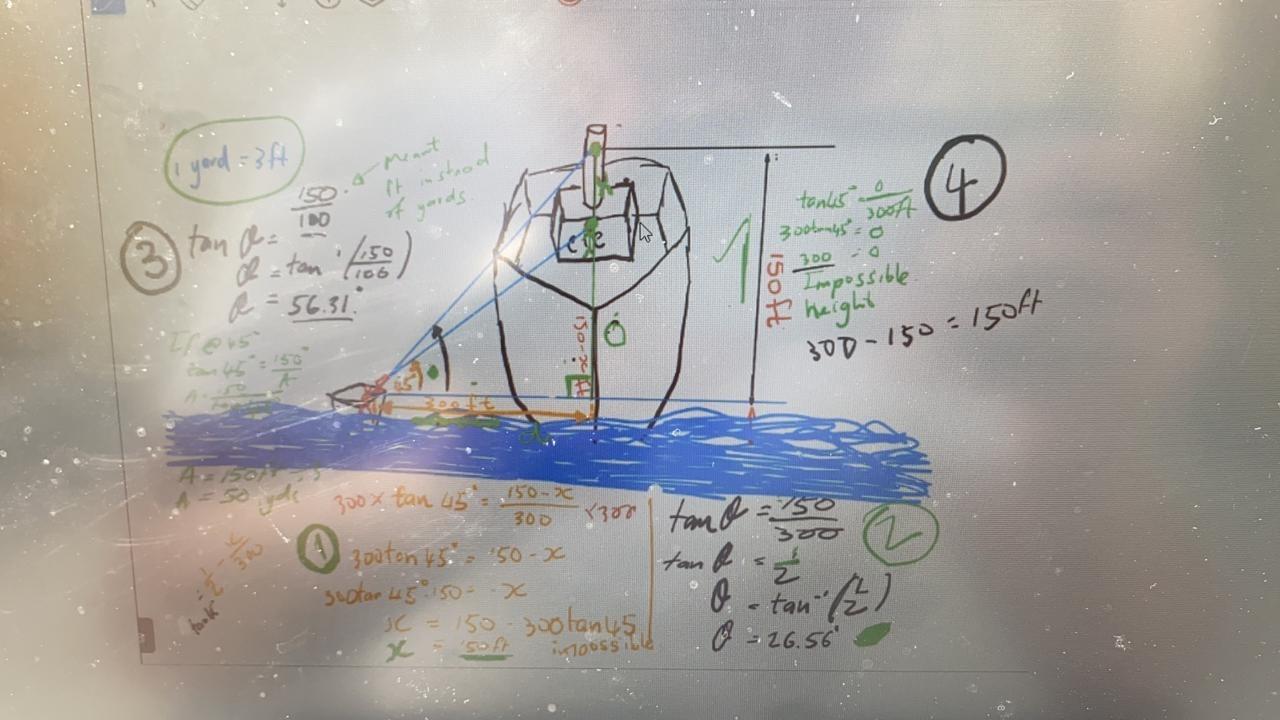 1 yard = 3ft
meant
ft instead
of yards
3
tan θ = 150/100
θ = tan⁻¹(150/100)
θ = 56.31°
If @ 45°
tan 45° = 150/A
A = 50 yds
ese
150-x ft
O
300ft
150ft
4
tan45° = O/300ft
300tan45° = O
300 = O
Impossible
height
300 - 150 = 150ft
1
300 × tan 45° = 150-x/300 × 300
300tan45° = 150 - x
300tan45° 150 = -x
x = 150 - 300tan45
x = 150ft impossible
2
tan θ = 150/300
tan θ = 1/2
θ = tan⁻¹(1/2)
θ = 26.56°